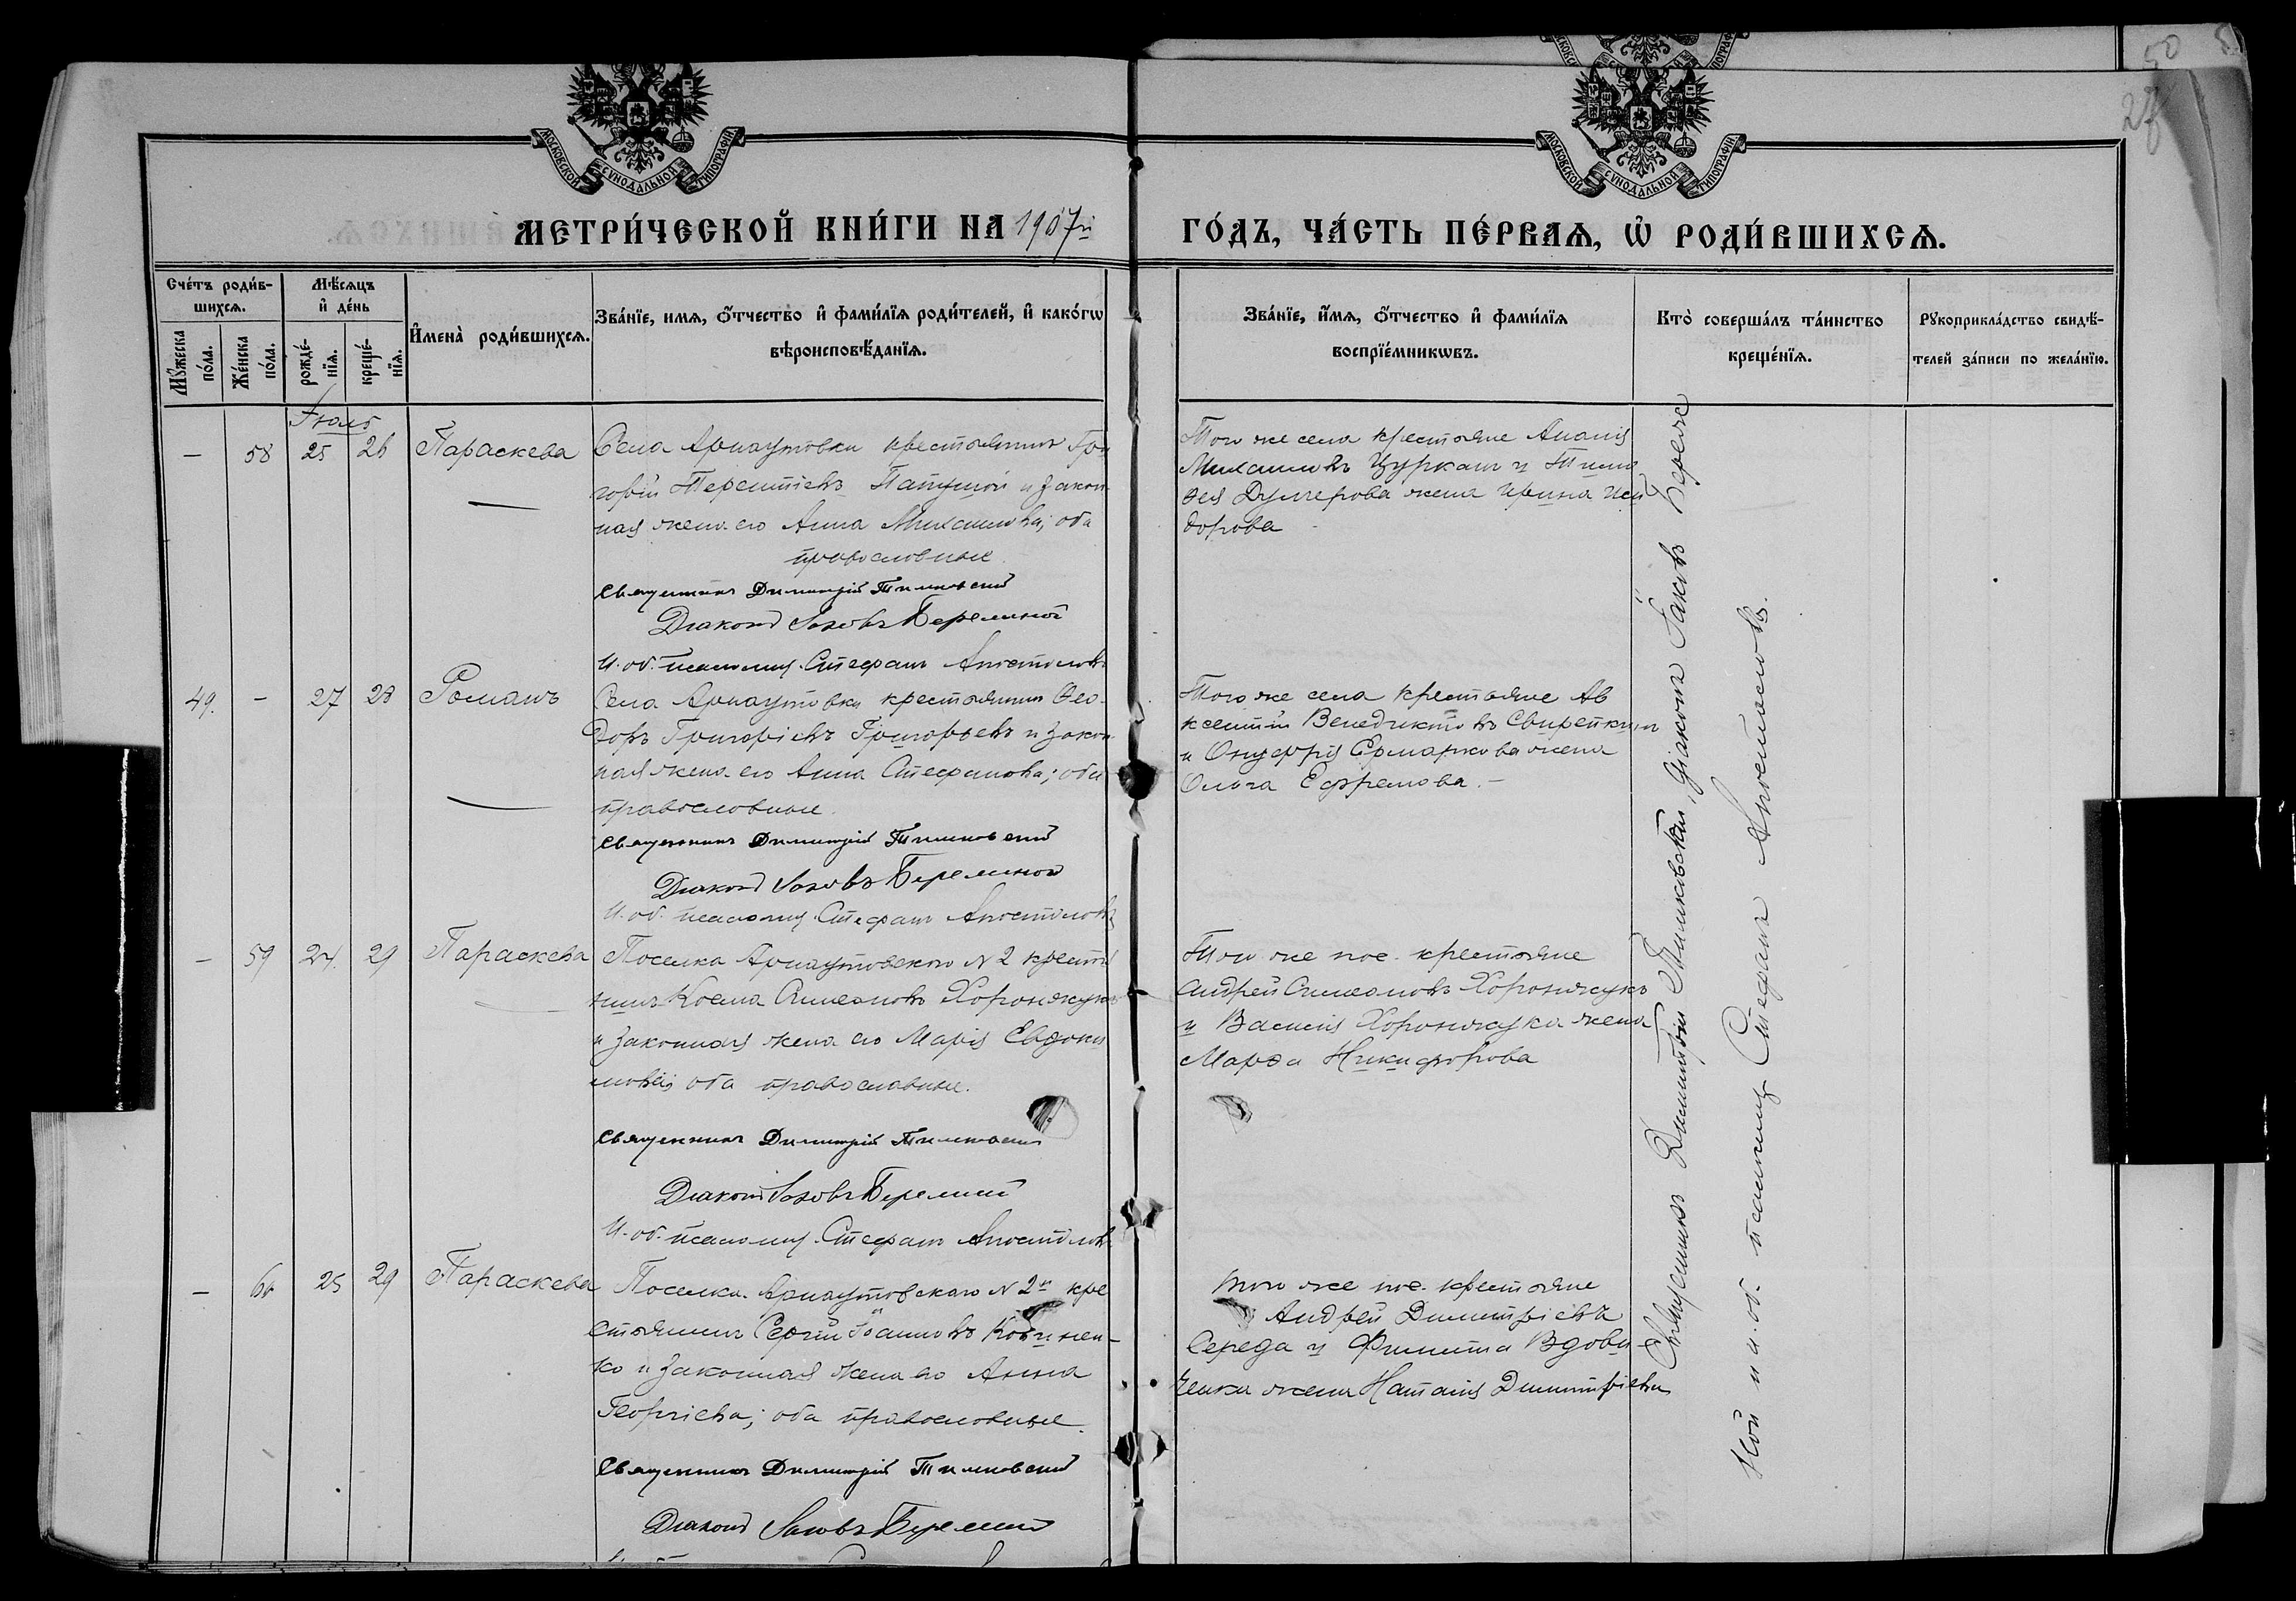 50
28
МОСКОВСКОЙ СѴНОДАЛЬНОЙ ТИПОГРАФІИ
МОСКОВСКОЙ СѴНОДАЛЬНОЙ ТИПОГРАФІИ
МЕТРИ́ЧЕСКОЙ КНИ́ГИ НА 1907й
ГО́ДЪ, ЧА́СТЬ ПЕ́РВАѦ, Ѡ҆ РОДИ́ВШИХСѦ.
Сче́тъ роди́в-
шихсѧ.
Мѣ́сѧцъ
и҆ де́нь
Мꙋ́жеска
по́ла.
Же́нска
по́ла.
рожде́-
нїѧ.
креще́-
нїѧ.
И҆мена̀ роди́вшихсѧ.
Зва́нїе, имѧ, ѻ҆́тчество и҆ фами́лїѧ роди́телей, и҆ како́гѡ
вѣроисповѣ́данїѧ.
Зва́нїе, и҆́мѧ, ѻ҆́тчество и҆ фами́лїѧ
воспрїе́мникѡвъ.
Кто̀ соверша́лъ та́инство
креще́нїѧ.
Рꙋкоприкла́дство свидѣ́-
телей за́писи по жела́нїю.
Іюль
— 58 25 26 Параскева
Села Арнаутовки крестьянинъ Гри
горій Терентіевъ Папушой и закон
ная жена его Анна Михаилова; оба
православные.
Священникъ Димитрій Тимковскій
Діаконъ Іаковъ Бережной
И. об. псаломщ. Стефанъ Апостоловъ
Того же села крестьяне Ананія
Михаиловъ Цурканъ и Тимо
ѳея Думерова жена Ирина Иси
дорова
49. — 27 28 Романъ
Села Арнаутовки крестьянинъ Ѳео-
доръ Григоріевъ Григорьевъ и закон
ная жена его Анна Стефанова; оба
православные.
Священникъ Димитрій Тимковскій
Діаконъ Іаковъ Бережной
И. об. псаломщ. Стефанъ Апостоловъ
Того же села крестьяне Ав
ксентій Венедиктовъ Свирепкинъ
и Онуфрія Ермаркова жена
Ольга Ефремова. —
— 59 24. 29 Параскева
Поселка Арнаутовскаго N 2 крестья
нинъ Косма Симеоновъ Хоронжукъ
и законная жена его Марія Евдоки
мова; оба православные.
Священникъ Димитрій Тимковскій
Діаконъ Іаковъ Бережной
И. об. псаломщ. Стефанъ Апостоловъ
Того же пос. крестьяне
Андрей Симеоновъ Хоронжукъ
и Василія Хоронжука жена
Марѳа Никифорова
— 60 25 29 Параскева
Поселка Арнаутовскаго N 2го кре
стьянинъ Сергій Іоанновъ Ковынен-
ко и законная жена его Анна
Георгіева; оба православные.
Священникъ Димитрій Тимковскій
Діаконъ Іаковъ Бережной
того же пос. крестьяне
Андрей Димитріевъ
Середа и Филиппа Вдови
ченки жена Наталія Димитріева
Священникъ Димитрій Тимковскій, Діаконъ Іаковъ Береж
ной и и. об. псаломщ. Стефанъ Апостоловъ.